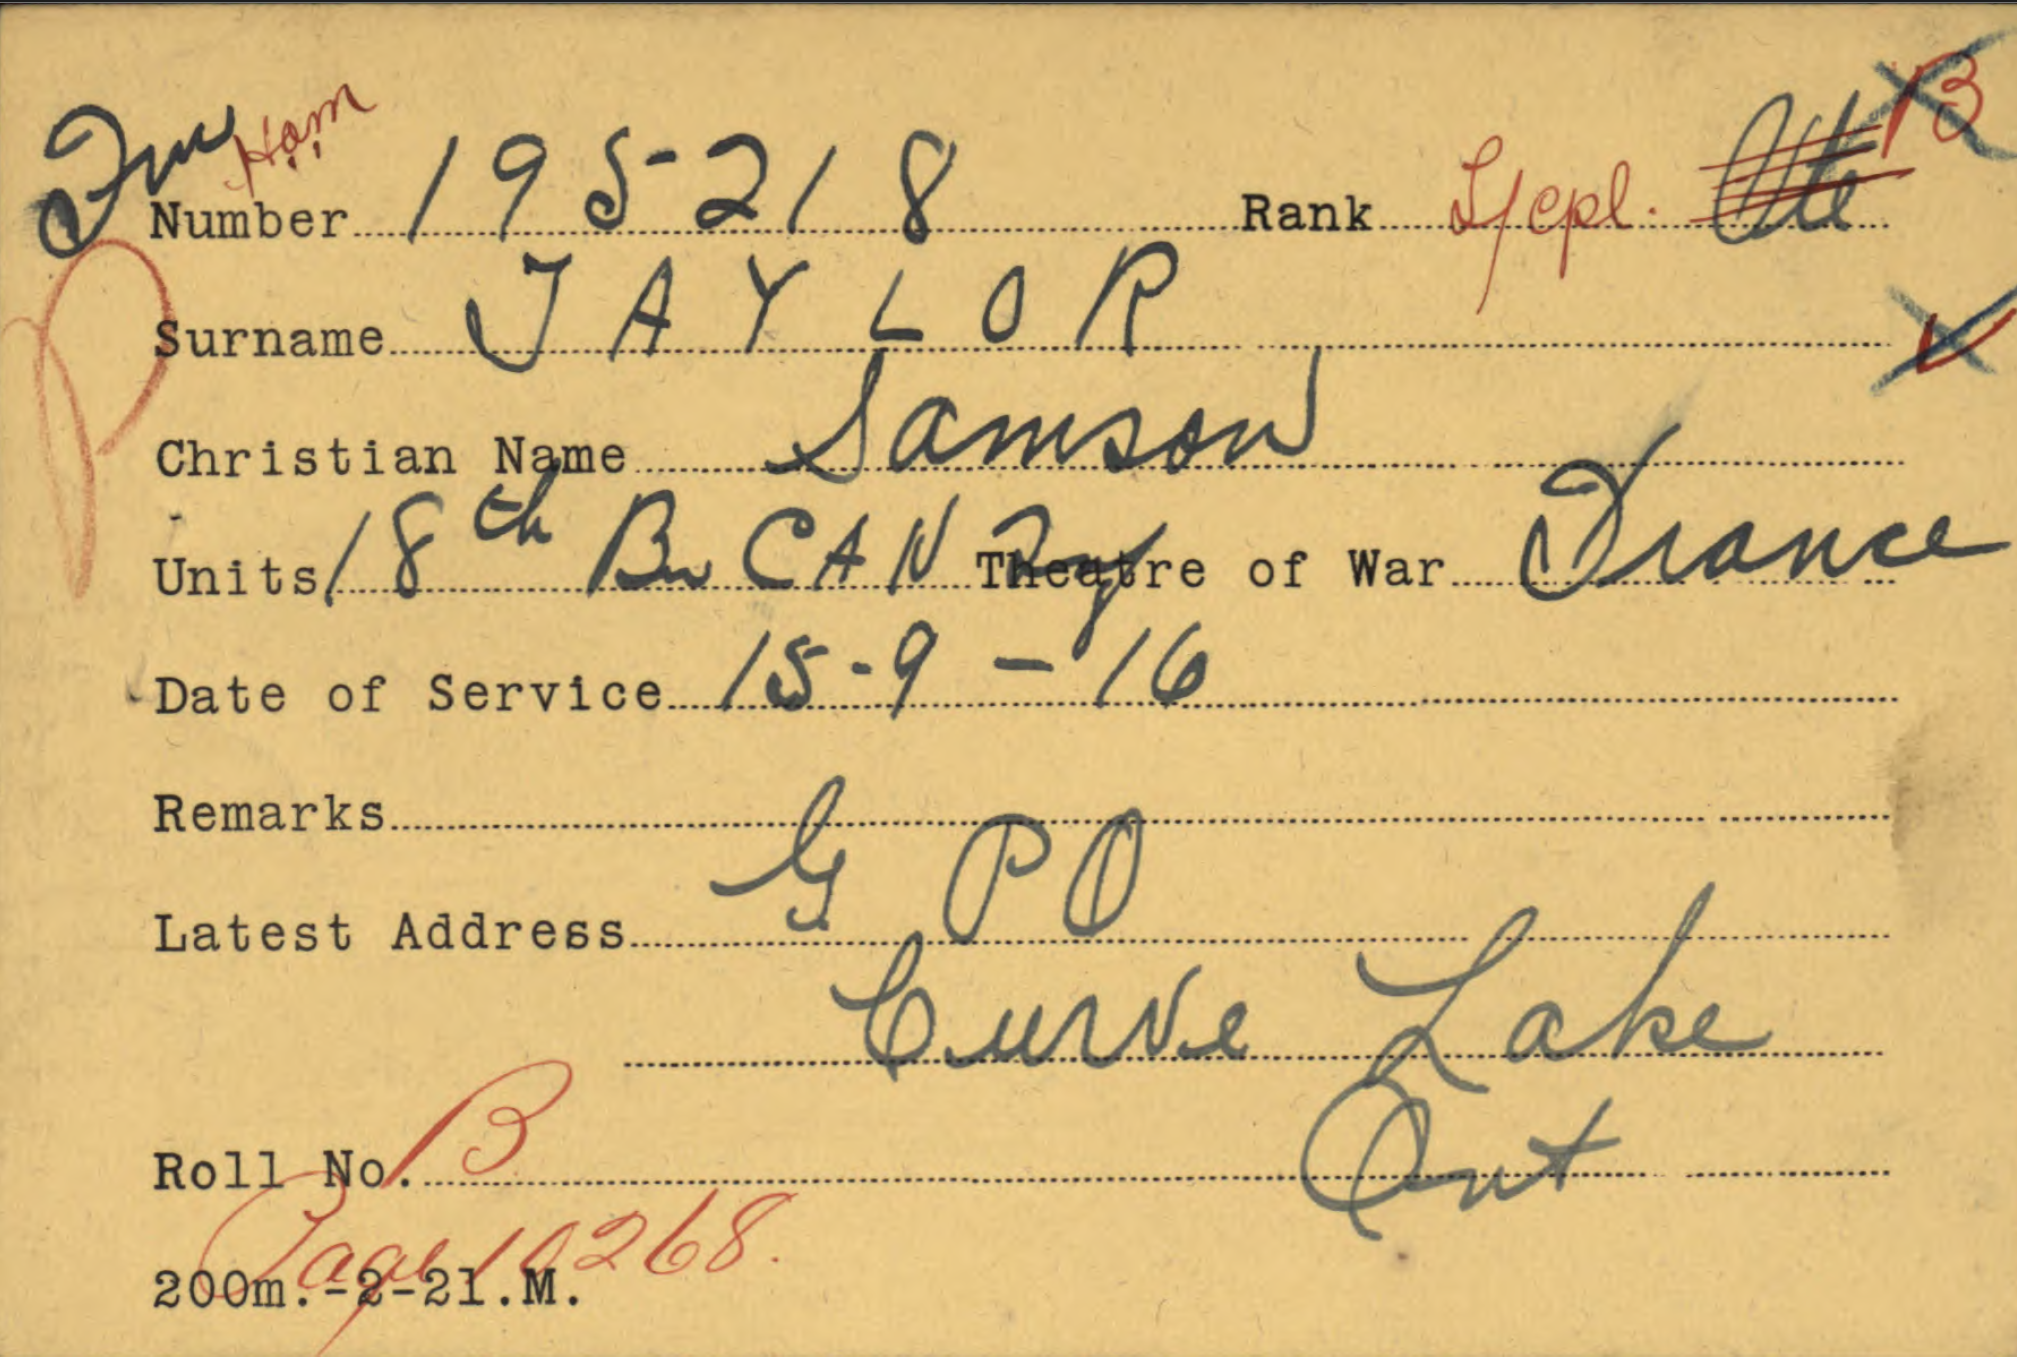 Ham
Number 195218 Rank L/cpl. Pte B
Surname TAYLOR
Christian Name Samson
Units 18th Bn CAN Theatre of War France
Date of Service 15-9-16
Remarks
Latest Address G P O
Curve Lake
Ont
Roll No. B
Page 10268.
200m.-2-21.M.